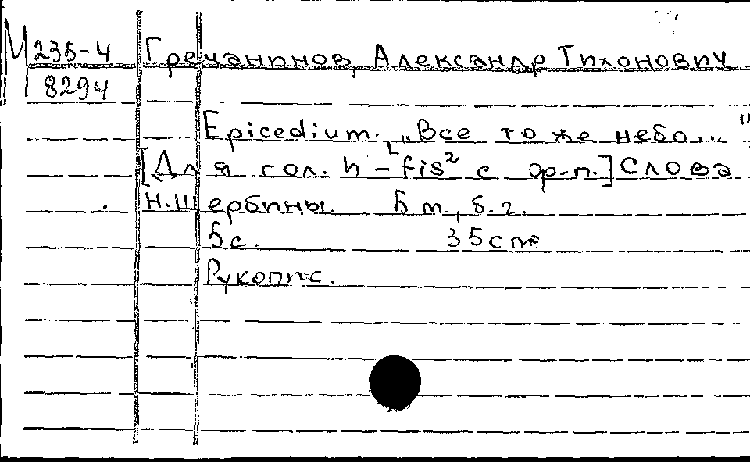 М 235-4 Гречанинов, Александр Тихонович
8294
Epicedium. „Все то же небо..."
[Для гол. h - fis² с ф.-п.] Слова
Н. Щербины. Б м, б. г.
5 с. 35 см
Рукопис.